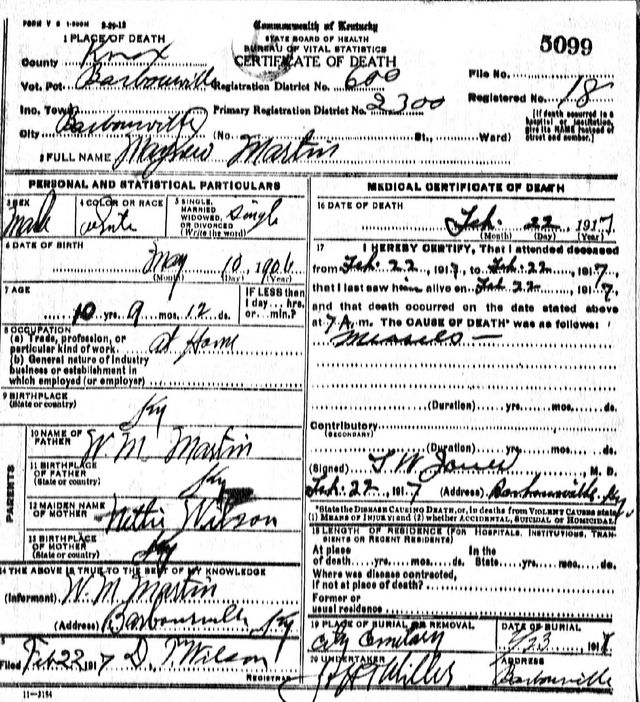 FORM V S 1-500M 3-29-13
Commonwealth of Kentucky
STATE BOARD OF HEALTH
BUREAU OF VITAL STATISTICS
CERTIFICATE OF DEATH
5099
1 PLACE OF DEATH
County Knox
Vot. Pct. Barbourville Registration District No. 600
File No.
Inc. Town Barbourville Primary Registration District No. 2300
Registered No. 18
City (No. St., Ward)
[If death occurred in a hospital or institution, give its NAME instead of street and number.]
2 FULL NAME Martin
PERSONAL AND STATISTICAL PARTICULARS
3 SEX Male
4 COLOR OR RACE white
5 SINGLE, MARRIED, WIDOWED, OR DIVORCED (Write the word) Single
6 DATE OF BIRTH May 10 1906
(Month) (Day) (Year)
7 AGE 10 yrs. 9 mos. 12 ds.
IF LESS than 1 day... hrs. or ... min.?
8 OCCUPATION
(a) Trade, profession, or particular kind of work. at Home
(b) General nature of industry business or establishment in which employed (or employer)
9 BIRTHPLACE (State or country) Ky
PARENTS
10 NAME OF FATHER W. M. Martin
11 BIRTHPLACE OF FATHER (State or country) Ky
12 MAIDEN NAME OF MOTHER Nettie Wilson
13 BIRTHPLACE OF MOTHER (State or country) Ky
14 THE ABOVE IS TRUE TO THE BEST OF MY KNOWLEDGE
(Informant) W. M. Martin
(Address) Barbourville Ky
Filed Feb 22 1917 D. T Wilson
REGISTRAR
11-3184
MEDICAL CERTIFICATE OF DEATH
16 DATE OF DEATH
Feb. 22, 1917
(Month) (Day) (Year)
17 I HEREBY CERTIFY, That I attended deceased
from Feb. 22, 1917, to Feb. 22, 1917
that I last saw him alive on Feb 22, 1917,
and that death occurred on the date stated above
at 7 A. m. The CAUSE OF DEATH* was as follows:
Measels —
(Duration) yrs. mos. ds.
Contributory
(SECONDARY)
(Duration) yrs. mos. ds.
(Signed) M. D.
Feb. 22, 1917 (Address) Barbourville, Ky
*State the DISEASE CAUSING DEATH, or, in deaths from VIOLENT CAUSES state
(1) MEANS OF INJURY; and (2) whether ACCIDENTAL, SUICIDAL or HOMICIDAL.
18 LENGTH OF RESIDENCE (FOR HOSPITALS, INSTITUTIONS, TRANSIENTS OR RECENT RESIDENTS)
At place of death yrs. mos. ds. In the State yrs. mos. ds.
Where was disease contracted, if not at place of death?
Former or usual residence
19 PLACE OF BURIAL OR REMOVAL City Cemetary
DATE OF BURIAL 2/23 191
20 UNDERTAKER
ADDRESS Barbourville